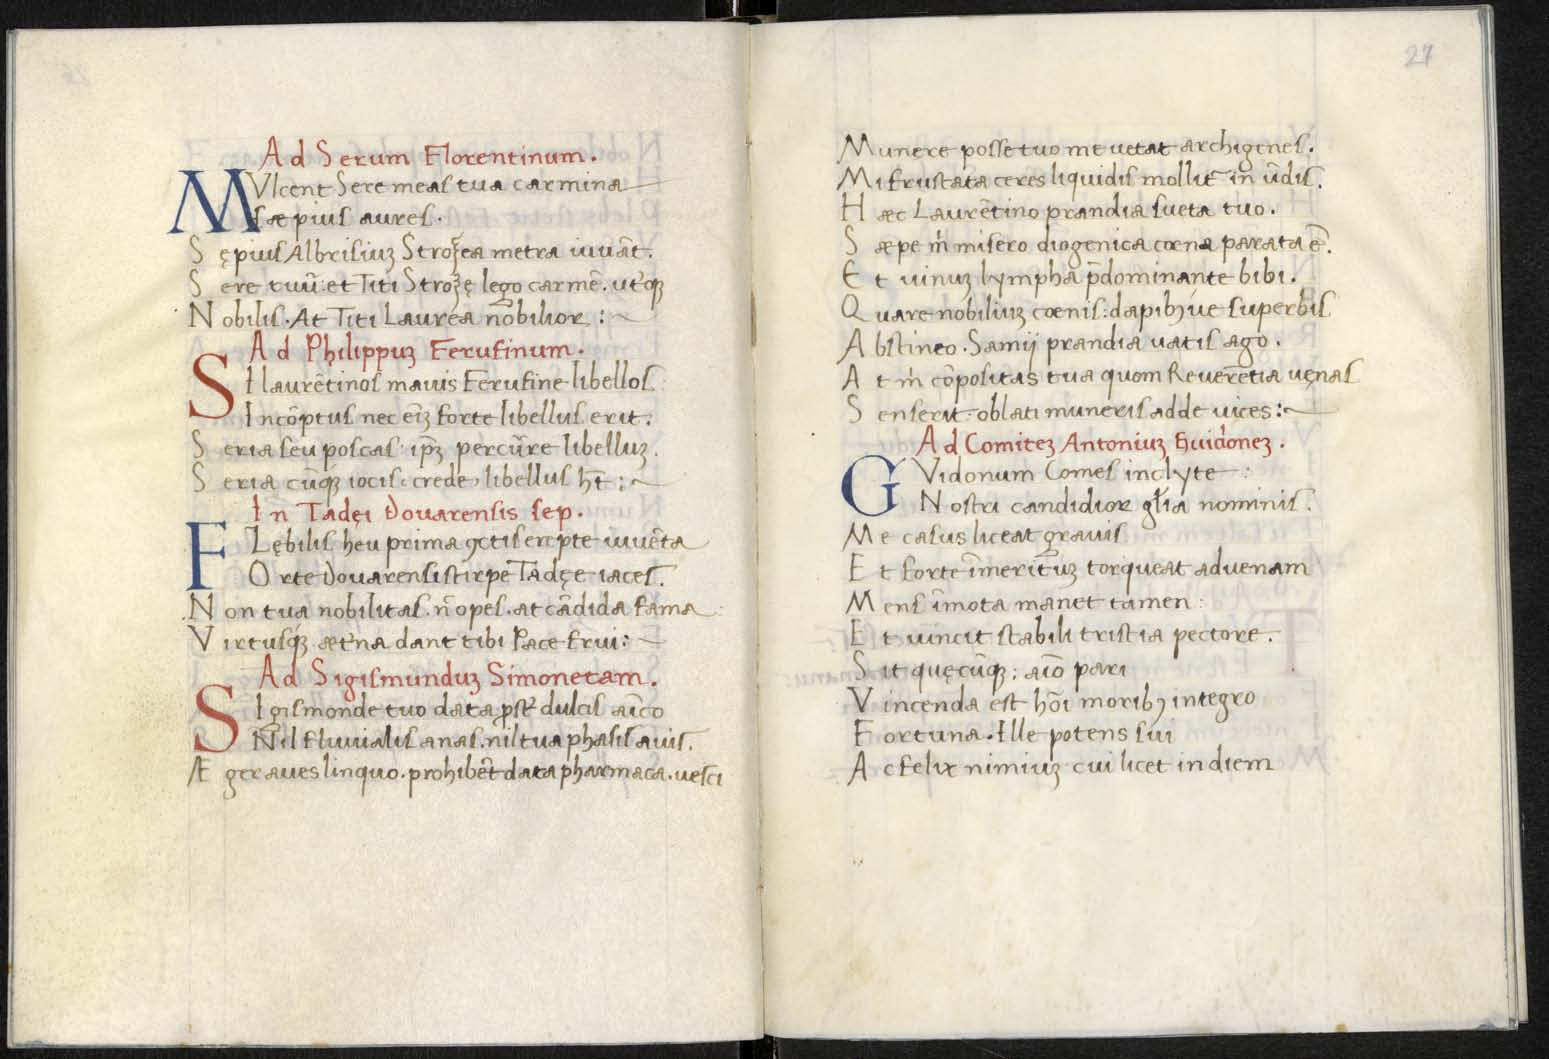 Ad Serum Florentinum.
MVlcent Sere meas tua carmina
sæpius aures.
Sępius Albrisiuꝫ Strozea metra iuuāt.
Sere tuū: et Titi Strozę lego carmē. utꝗꝫ
Nobilis. At Titi Laurea nobilior:~
Ad Philippuꝫ Ferufinum.
SI laurētinos mauis Ferufine libellos:
Incōptus nec eīꝫ forte libellus erit:
Seria seu poscas: ip̄ꝫ percūre libelluꝫ.
Seria cūqꝫ iocis: crede, libellus h̄t:~
In Tadęi Douarensis sep.
FLębilis heu prima ꝯctis erepte iuuēta
Forte Douarensi stirpe Tadęe iaces.
Non tua nobilitas. n̄ opes. at cādida fama:
Virtusqꝫ æt'na dant tibi Pace frui:~
Ad Sigismunduꝫ Simonetam.
SIgismonde tuo data p̄st' dulcis aīco
Nil fluuialis anas. nil tua phasis auis.
Æger aues linquo. prohibēt data pharmaca. uesci
27
Munere posse tuo me uetat archigenes.
Mi frustata ceres liquidis mollit' in ūdis.
Hæc Laurētino prandia sueta tuo.
Sæpe m̄ misero diogenica cœna parata ē.
Et uinuꝫ lympha p̄dominante bibi.
Quare nobiliuꝫ cœnis: dapibꝫ ue superbis
Abstineo. Samij prandia uatis ago.
At m̄ cōpositas tua quom Reuerētia uęnas
Senserit: oblati muneris adde uices:~
Ad Comiteꝫ Antoniuꝫ Guidoneꝫ.
GVidonum Comes inclyte:
Nostri candidior gl̄ia nominis.
Me casus liceat grauis
Et forte īmerituꝫ torqueat aduenam
Mens īmota manet tamen:
Et uincit stabili tristia pectore.
Sit quęcūqꝫ: aīo pari
Vincenda est hōi moribꝫ integro
Fortuna. Ille potens sui
Ac felix nimiuꝫ cui licet in diem